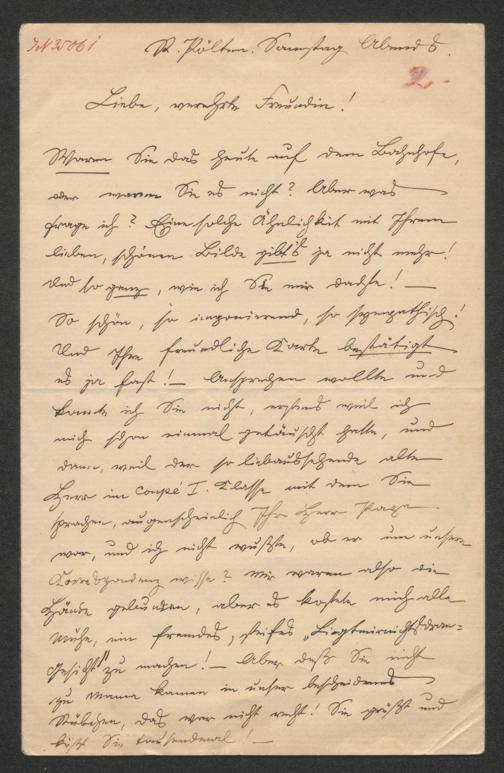 JN 35061
St. Pölten. Samstag Abends.
2.
Liebe, verehrte Freundin!
Waren Sie das heute auf dem Bahnhofe,
oder waren Sie es nicht? Aber was
frage ich? Eine solche Ähnlichkeit mit Ihrem
lieben, schönen Bilde gibt's ja nicht mehr!
Und so ganz, wie ich Sie mir dachte! —
So schön, so imponierend, so sympathisch!
Und Ihre freundliche Karte bestätigt
es ja fast! — Ansprechen wollte und
konnte ich Sie nicht, erstens weil ich
mich schon einmal getäuscht hatte, und
dann, weil der so liebaussehende alte
Herr im Coupé I. Classe mit dem Sie
sprachen, augenscheinlich Ihr Herr Papa
war, und ich nicht wußte, ob er um unsere
Korrespondenz wisse? Mir waren also die
Hände gebunden, aber es kostete mich alle
Mühe, ein fremdes, steifes „Liegtmirnichtsdran-
gesicht" zu machen! — Aber, daß Sie nicht
zu Mama kamen in unser bescheidenes
Stübchen, das war nicht recht! Sie grüßt und
küßt Sie tausendmal! —